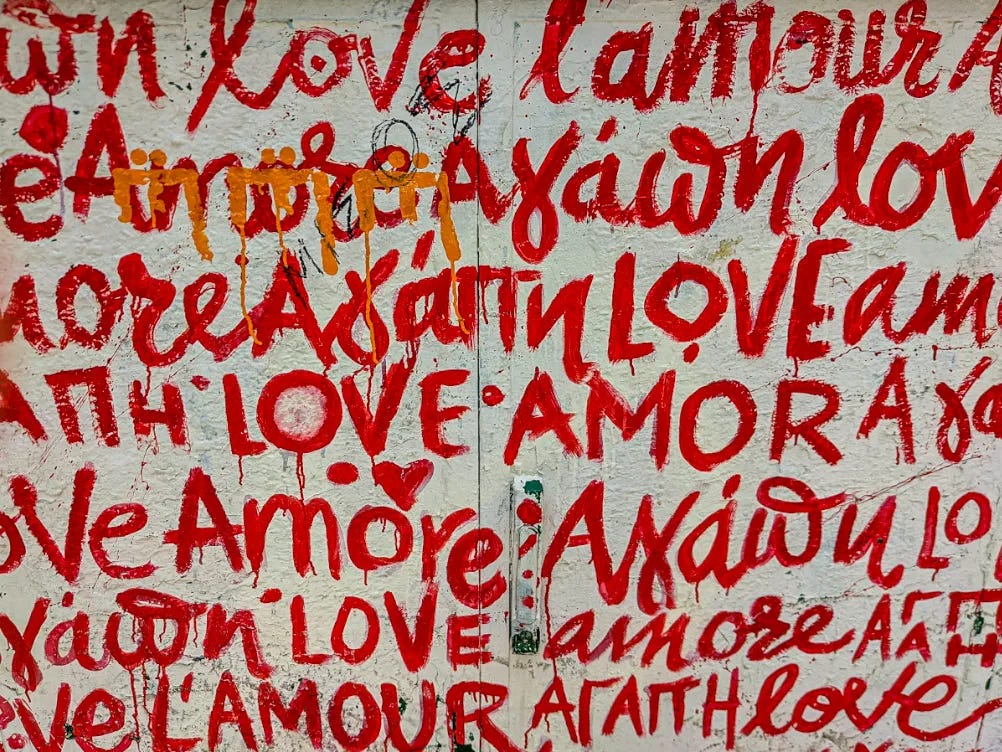 love l'amour
Αγάπη lov
more Αγάπη LOVE am
ΑΠΗ·LOVE·AMOR Αγά
ove Amore·Αγάπη LO
γάπη LOVE amore ΑΓΑΠΗ
ove L'AMOUR ΑΓΑΠΗ love